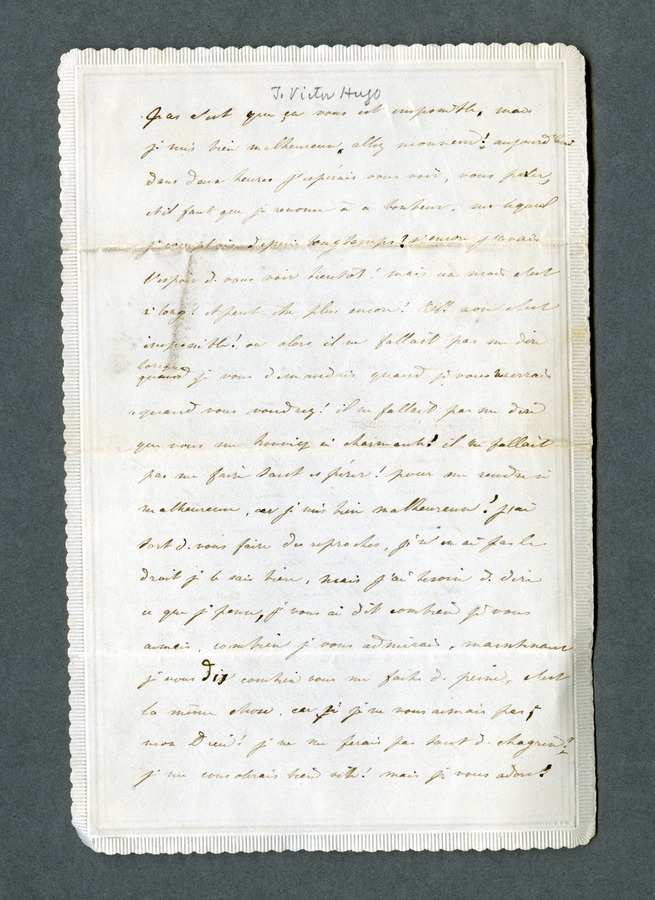 To Victor Hugo
pas c'est que ça vous est impossible, mais
je suis bien malheureuse, allez monsieur! aujourd'hui
dans deux heures j'espérais vous voir, vous parler,
et il faut que je renonce à ce bonheur, sur lequel
je comptais depuis longtemps! si encore j'avais
l'espoir de vous voir bientôt! mais un mois c'est
si long! et peut être plus encore! Oh! non c'est
impossible! ou alors il ne fallait pas me dire
lorsque
quand je vous demandais quand je vous reverrais
quand vous voudrez! il ne fallait pas me dire
que vous me trouviez si charmante! il ne fallait
pas me faire tant espérer! pour me rendre si
malheureuse, car je suis bien malheureuse! j'ai
tort de vous faire des reproches, je n'en ai pas le
droit je le sais bien, mais j'ai besoin de dire
ce que je pense, je vous ai dit combien je vous
aimais, combien je vous admirais, maintenant
je vous dis combien vous me faites de peine, c'est
la même chose, car si je ne vous aimais pas,
mon Dieu! je ne me ferais pas tant de chagrin!
je me consolerais bien vite! mais je vous adore!